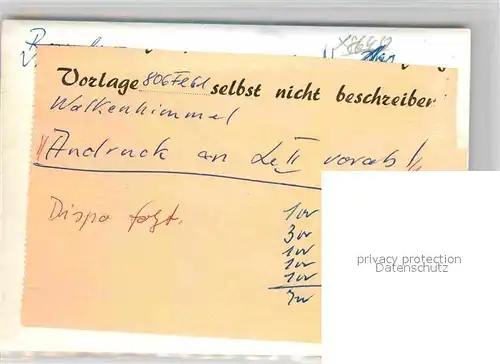 Vorlage 806 FE61 selbst nicht beschreiben
Wolkenhimmel
"Andruck an LeII vorab!"
Dispo folgt.
1w
3w
1w
1w
1w
7w
privacy protection
Datenschutz